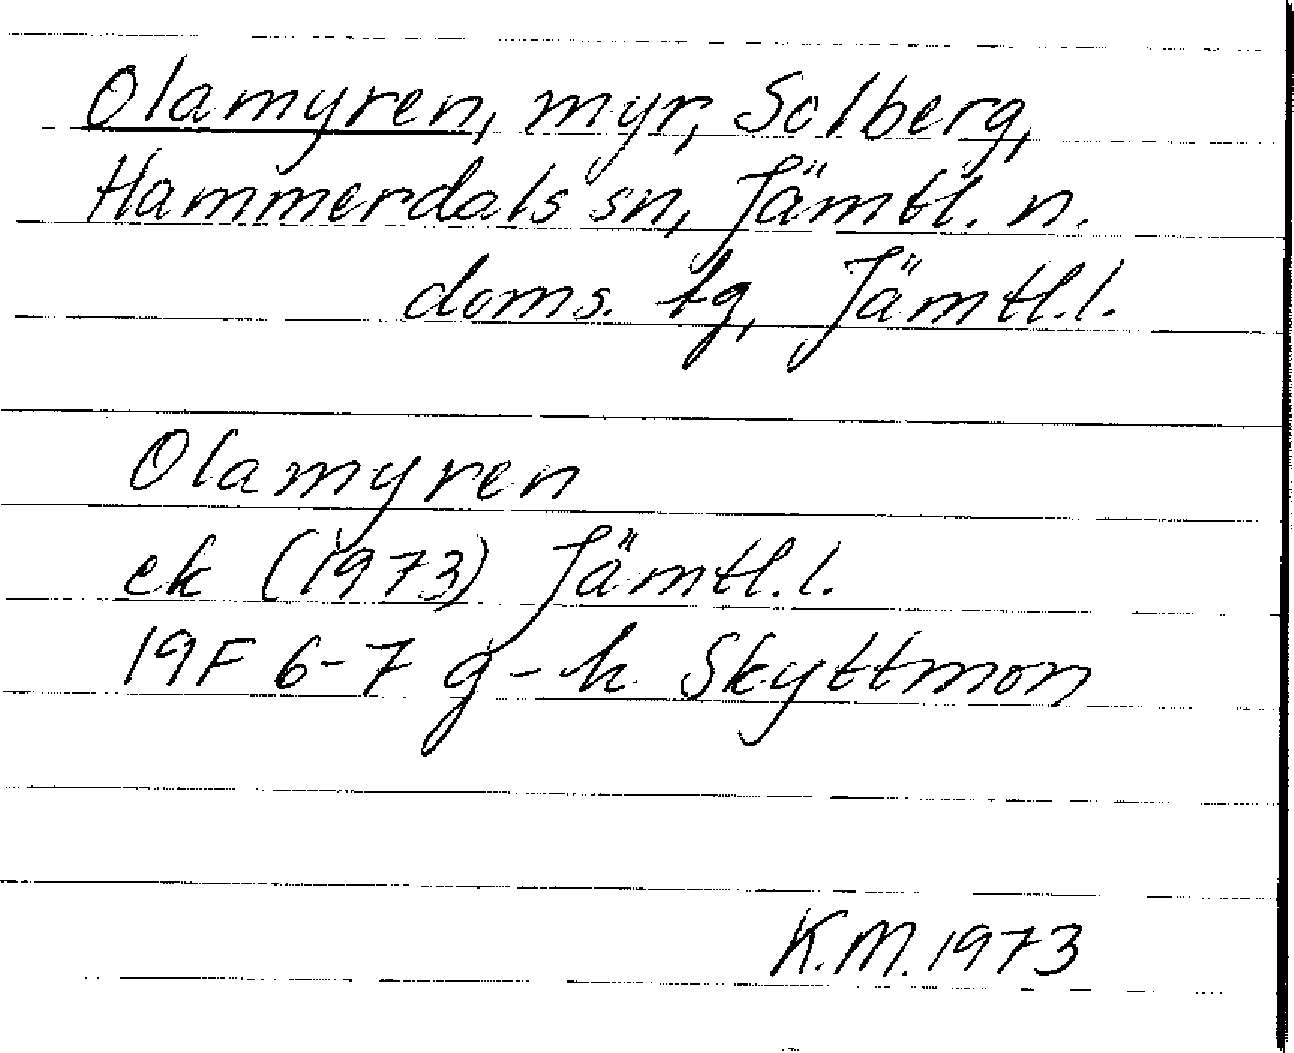 Olamyren, myr, Solberg,
Hammerdals sn, Jämtl. n.
doms. tg, Jämtl.l.
Olamyren
ek (1973) Jämtl.l.
19F 6-7 g-h Skyttmon
K.M. 1973